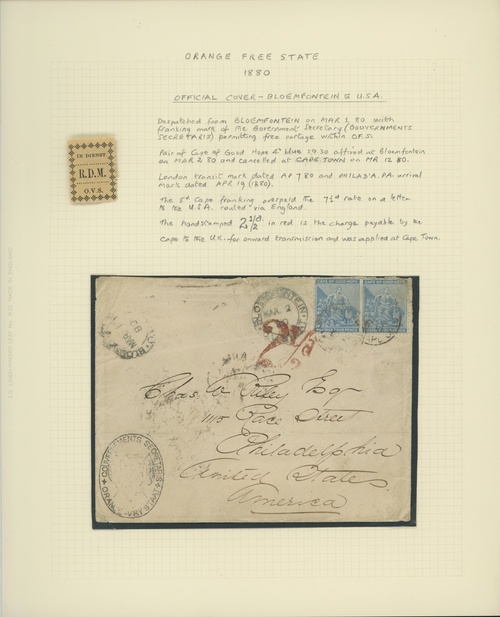 ORANGE FREE STATE
1880
OFFICIAL COVER - BLOEMFONTEIN to U.S.A.
Despatched from BLOEMFONTEIN on MAR 1 80 with
franking mark of the Government Secretary (GOUVERNMENTS
SECRETARIS) permitting free postage within O.F.S.
Pair of Cape of Good Hope 4d blue affixed at Bloemfontein
on MAR 2 80 and cancelled at CAPE TOWN on MR 12 80.
London transit mark dated AP 7 80 and PHILAD'A. PA. arrival
mark dated APR 19 (1880).
The 8d Cape franking overpaid the 7½d rate on a letter
to the U.S.A. routed via England.
The handstamped 2½d. in red is the charge payable by the
Cape to the U.K. for onward transmission and was applied at Cape Town.
IN DIENST
R.D.M.
O.V.S.
BLOEMFONTEIN
MAR 2
CAPE OF GOOD HOPE
CAPE OF GOOD HOPE
2½d
Chas. W. Riley Esq
1115 Race Street
Philadelphia
United States
America
GOUVERNEMENTS SECRETARIS
ORANJE VRYSTAAT